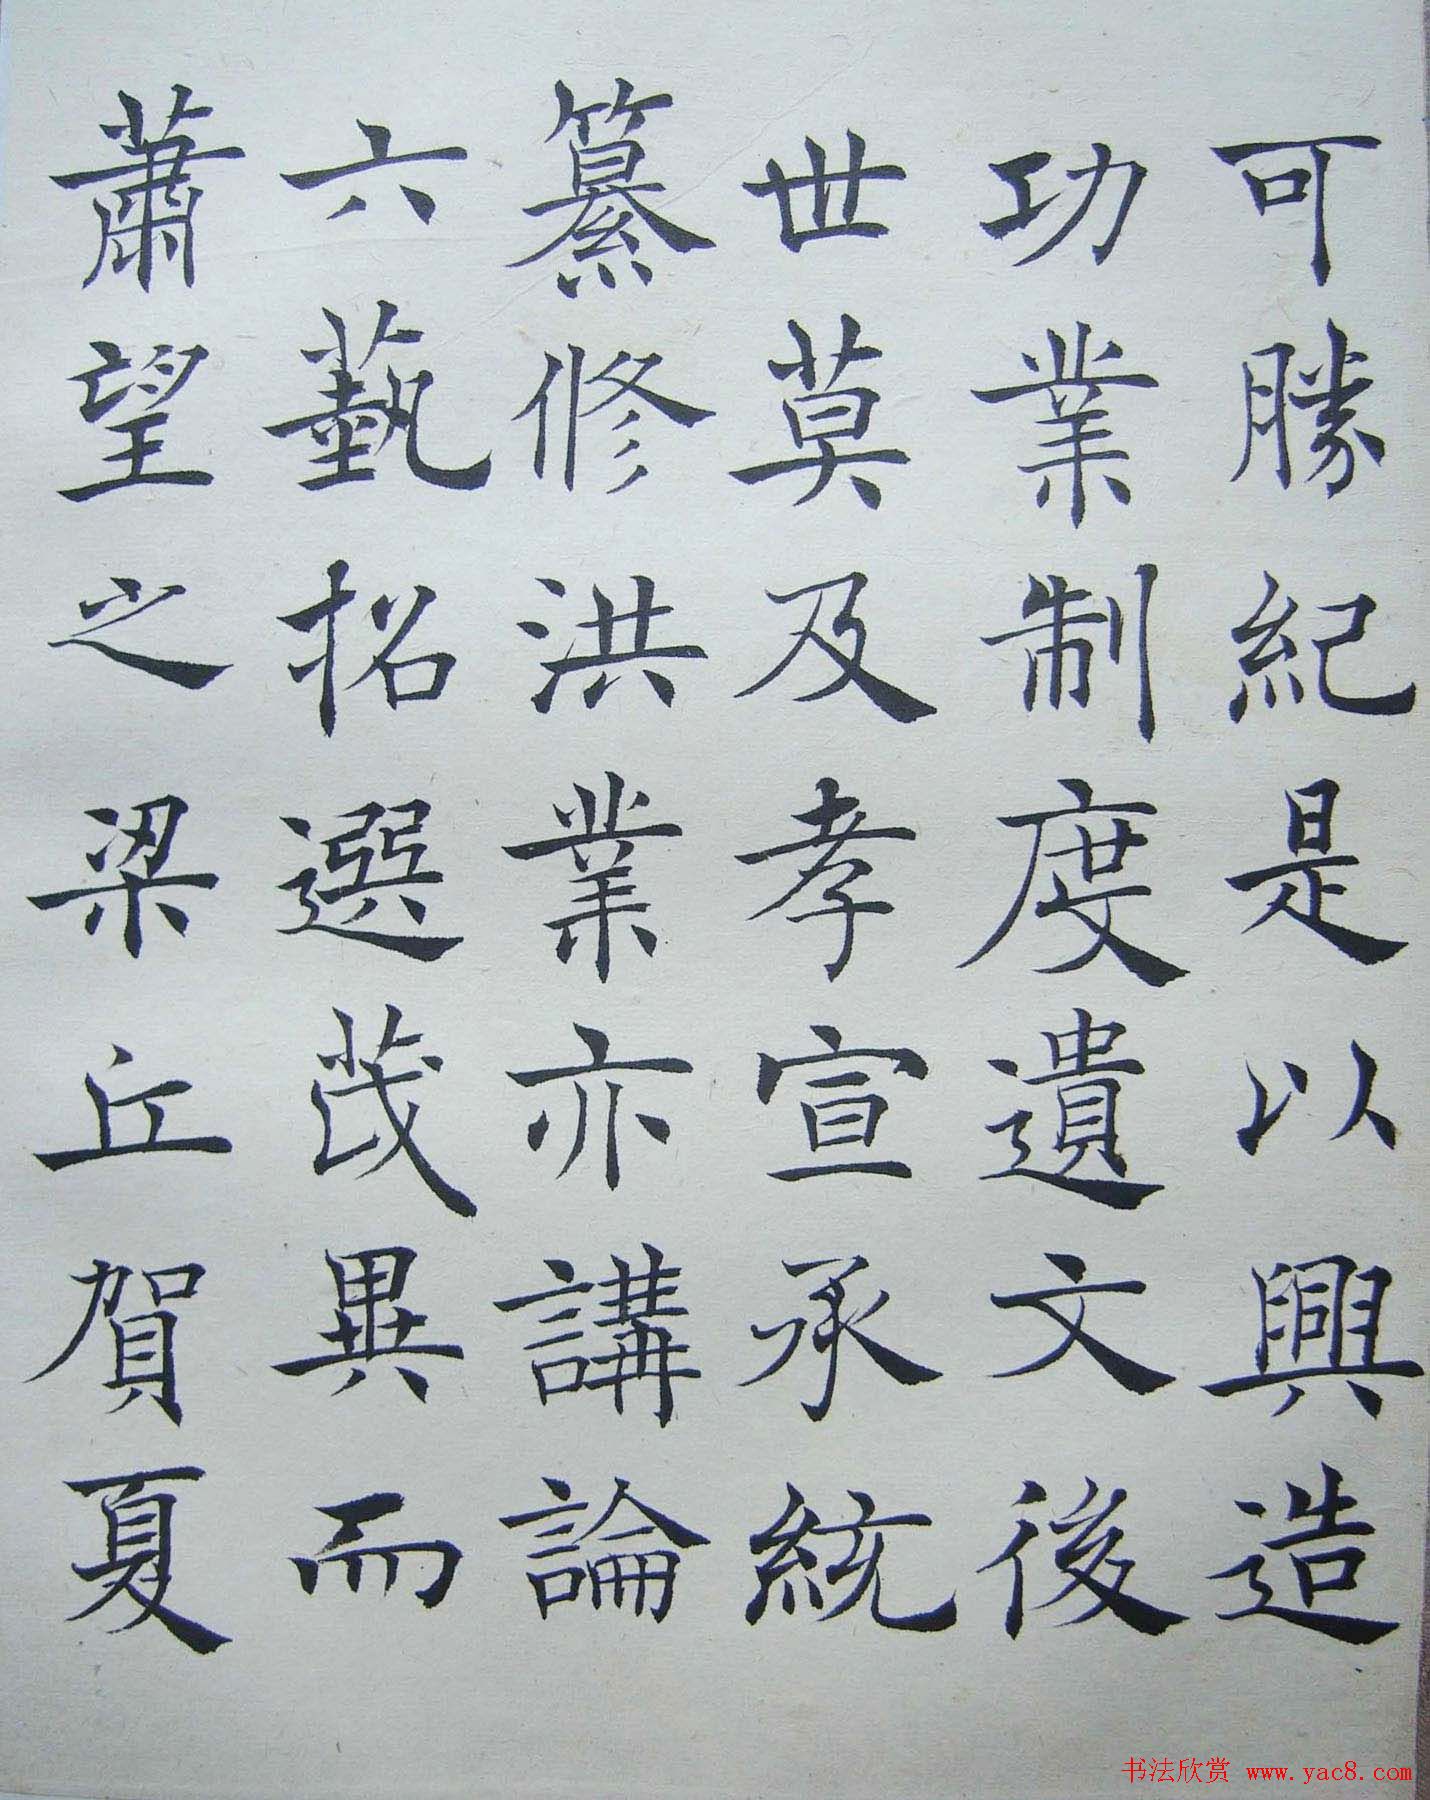 可勝紀是以興造
功業制度遺文後
世莫及孝宣承統
纂修洪業亦講論
六藝招選茂異而
蕭望之梁丘賀夏
书法欣赏 www.yac8.com